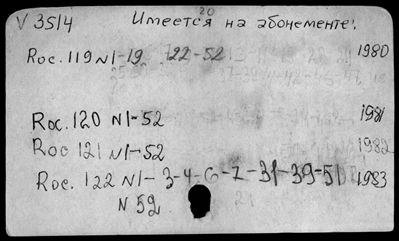 V 3514 Имеется на абонементе:
20
Roc. 119 N1-19 22-52 1980
Roc. 120 N1-52 1981
Roc 121 N1-52 1982
Roc. 122 N1-3-4-6-7-31-39-51 1983
N 52